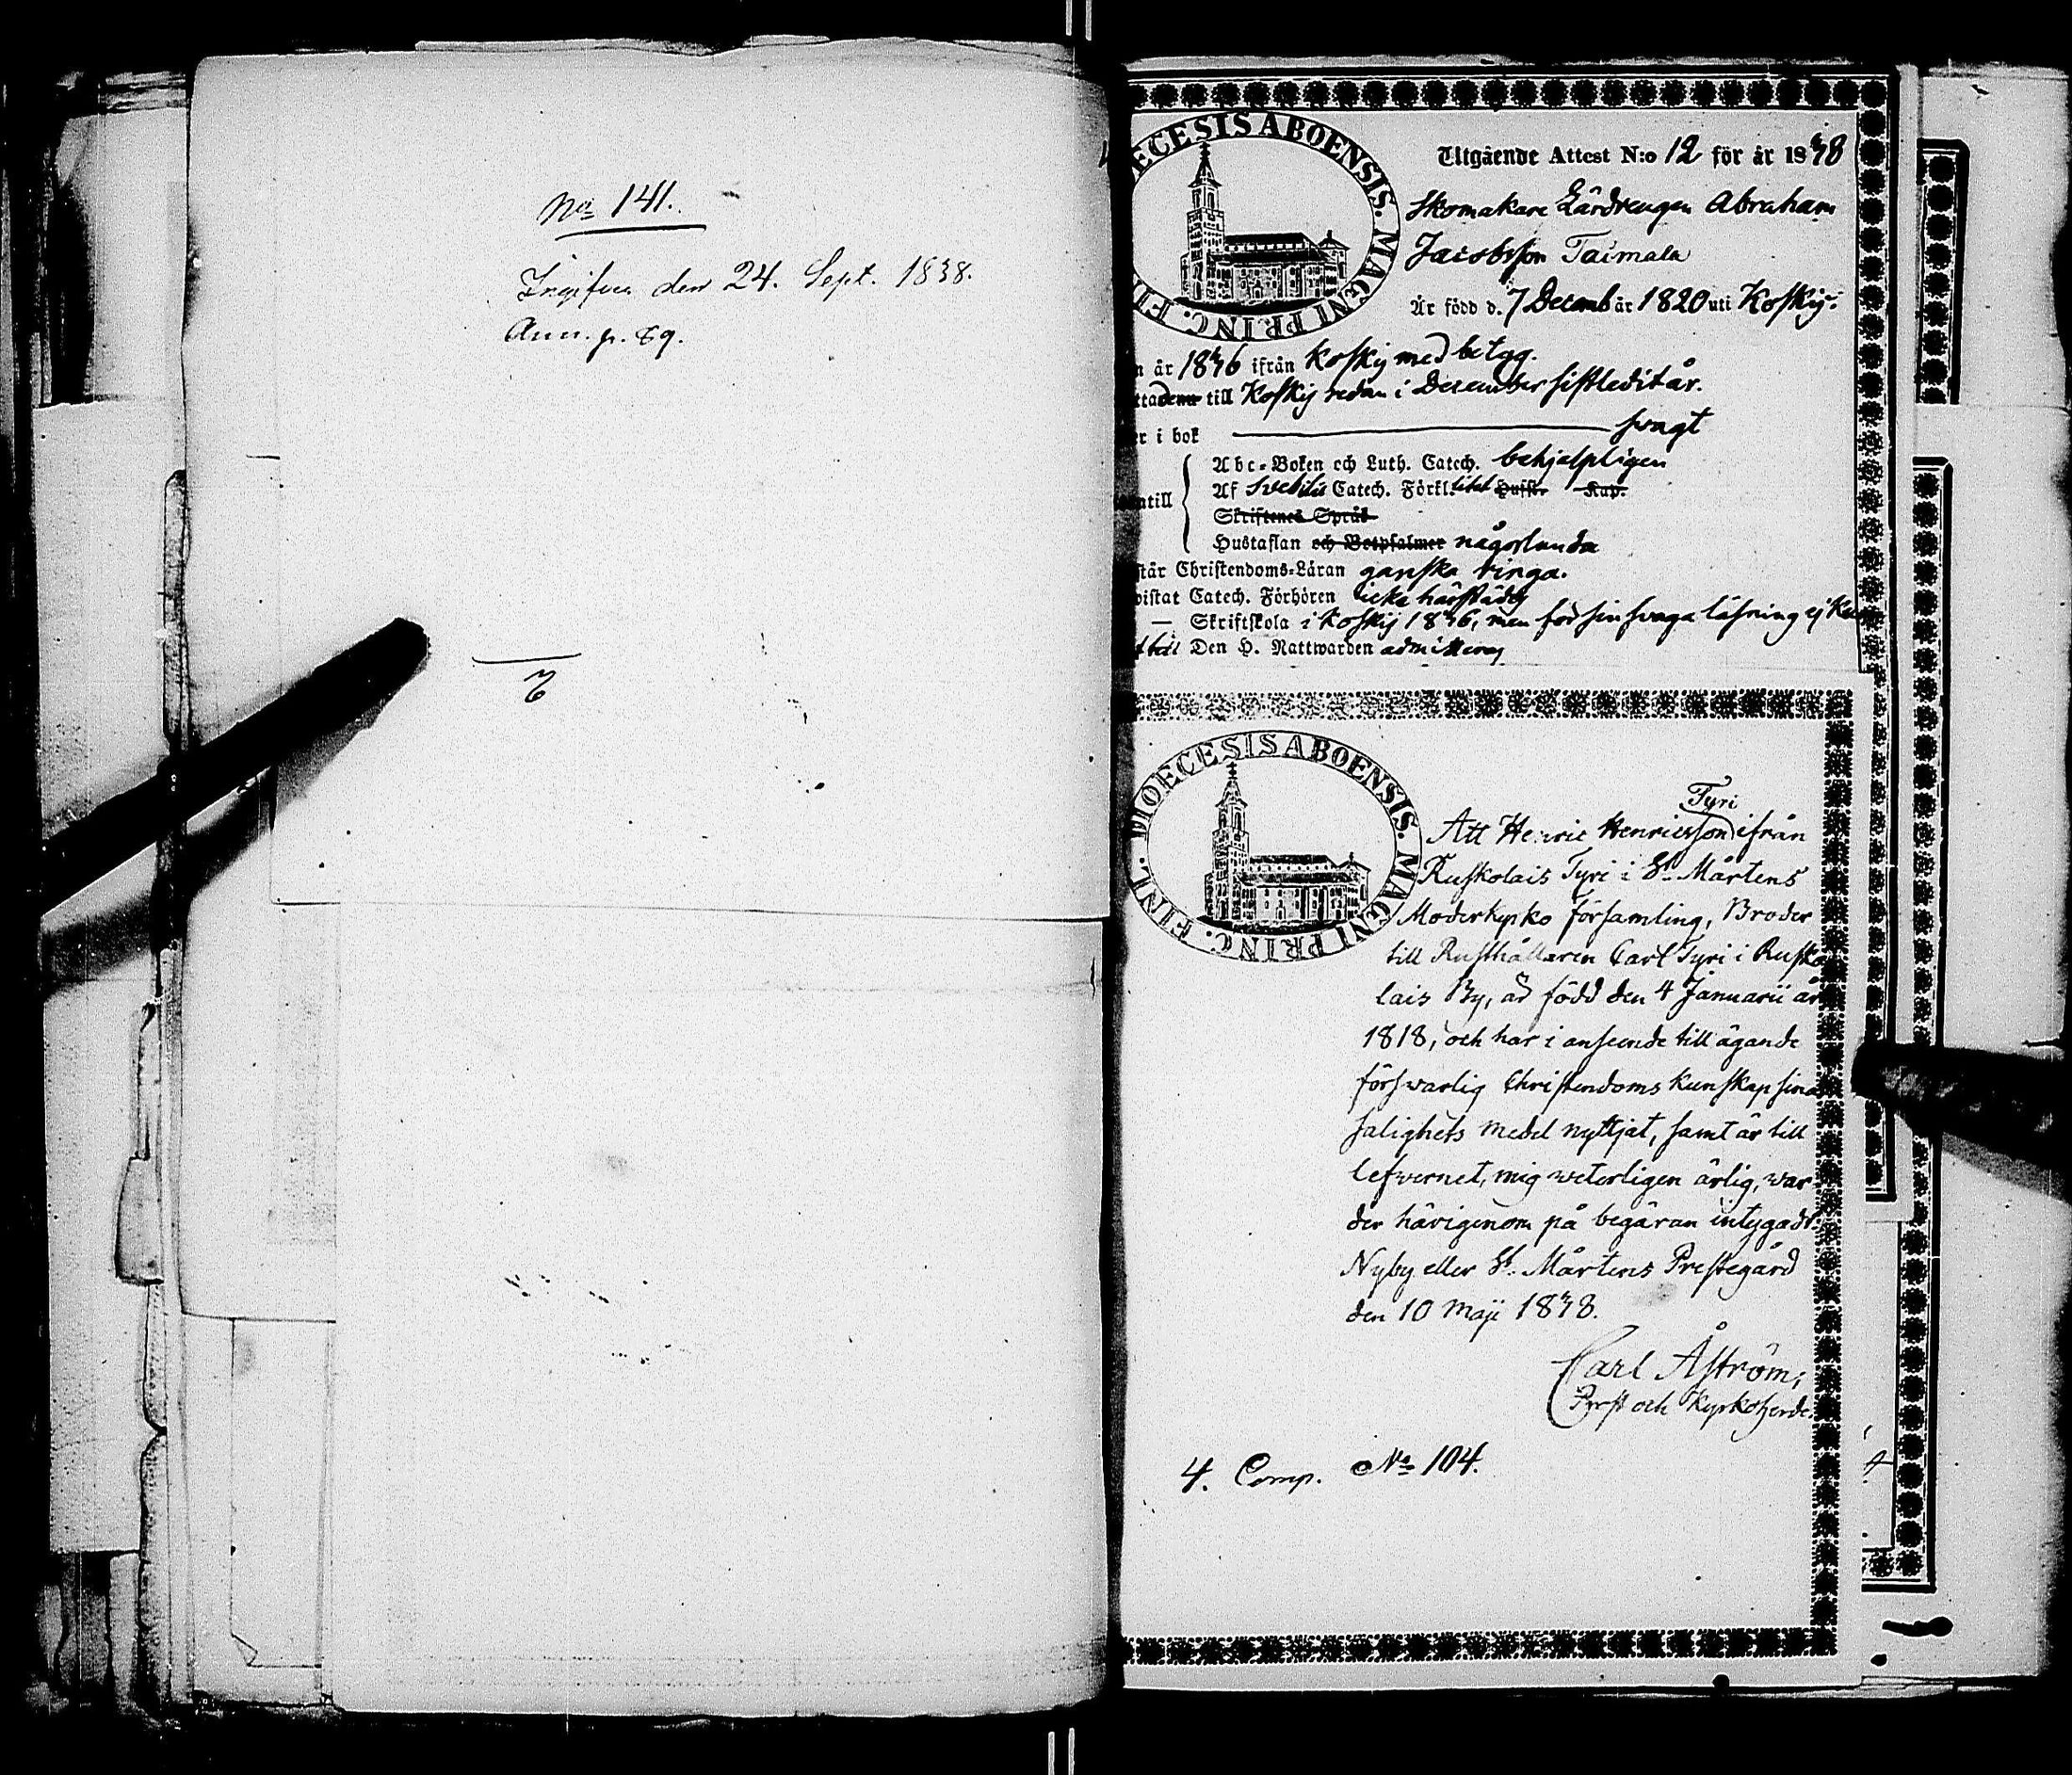 No 141.
Ingifven den 24. Sept. 1838.
Ann. p. 69.
DIOECESIS ABOENSIS. MAGNI PRINC. FINL.
Utgående Attest N:o 12 för år 1838
Skomakare Lärdrengen Abraham
Jacobsson Taimala
Är född d. 7 Decemb år 1820 uti Koskis:
n år 1836 ifrån Koskis med betyg.
till Koskis redan i December sistledit år.
er i bok svagt
Abc-Boken och Luth. Catech. behjelpligen
Af Svebilii Catech. Förkl. litet Hussr. Kap.
ntill
Skriftenes Språk
Hustaflan och Botpsalmer någorlunda
står Christendoms-Läran ganska ringa.
vistat Catech. Förhören icke härstädes
— Skriftskola i Koskis 1836, men för sin svaga läsning ej
till Den H. Nattwarden admitteras
DIOECESIS ABOENSIS. MAGNI PRINC. FINL.
Tyri
Att Henric Henricsson ifrån
Ruskolais Tyri i St. Mårtens
Moderkyrko församling, Broder
till Rusthållaren Carl Tyri i Rusko
lais By, är född den 4 Januarii år
1818, och har i anseende till ägande
förswarlig Christendoms kunskap sina
salighets medel nyttjat, samt är till
lefvernet, mig weterligen ärlig, war
der härigenom på begäran intygadt:
Nyby eller St. Mårtens Prestegård
den 10 Maji 1838.
Carl Åström,
Prost och Kyrkoherde.
4. Comp. No 104.